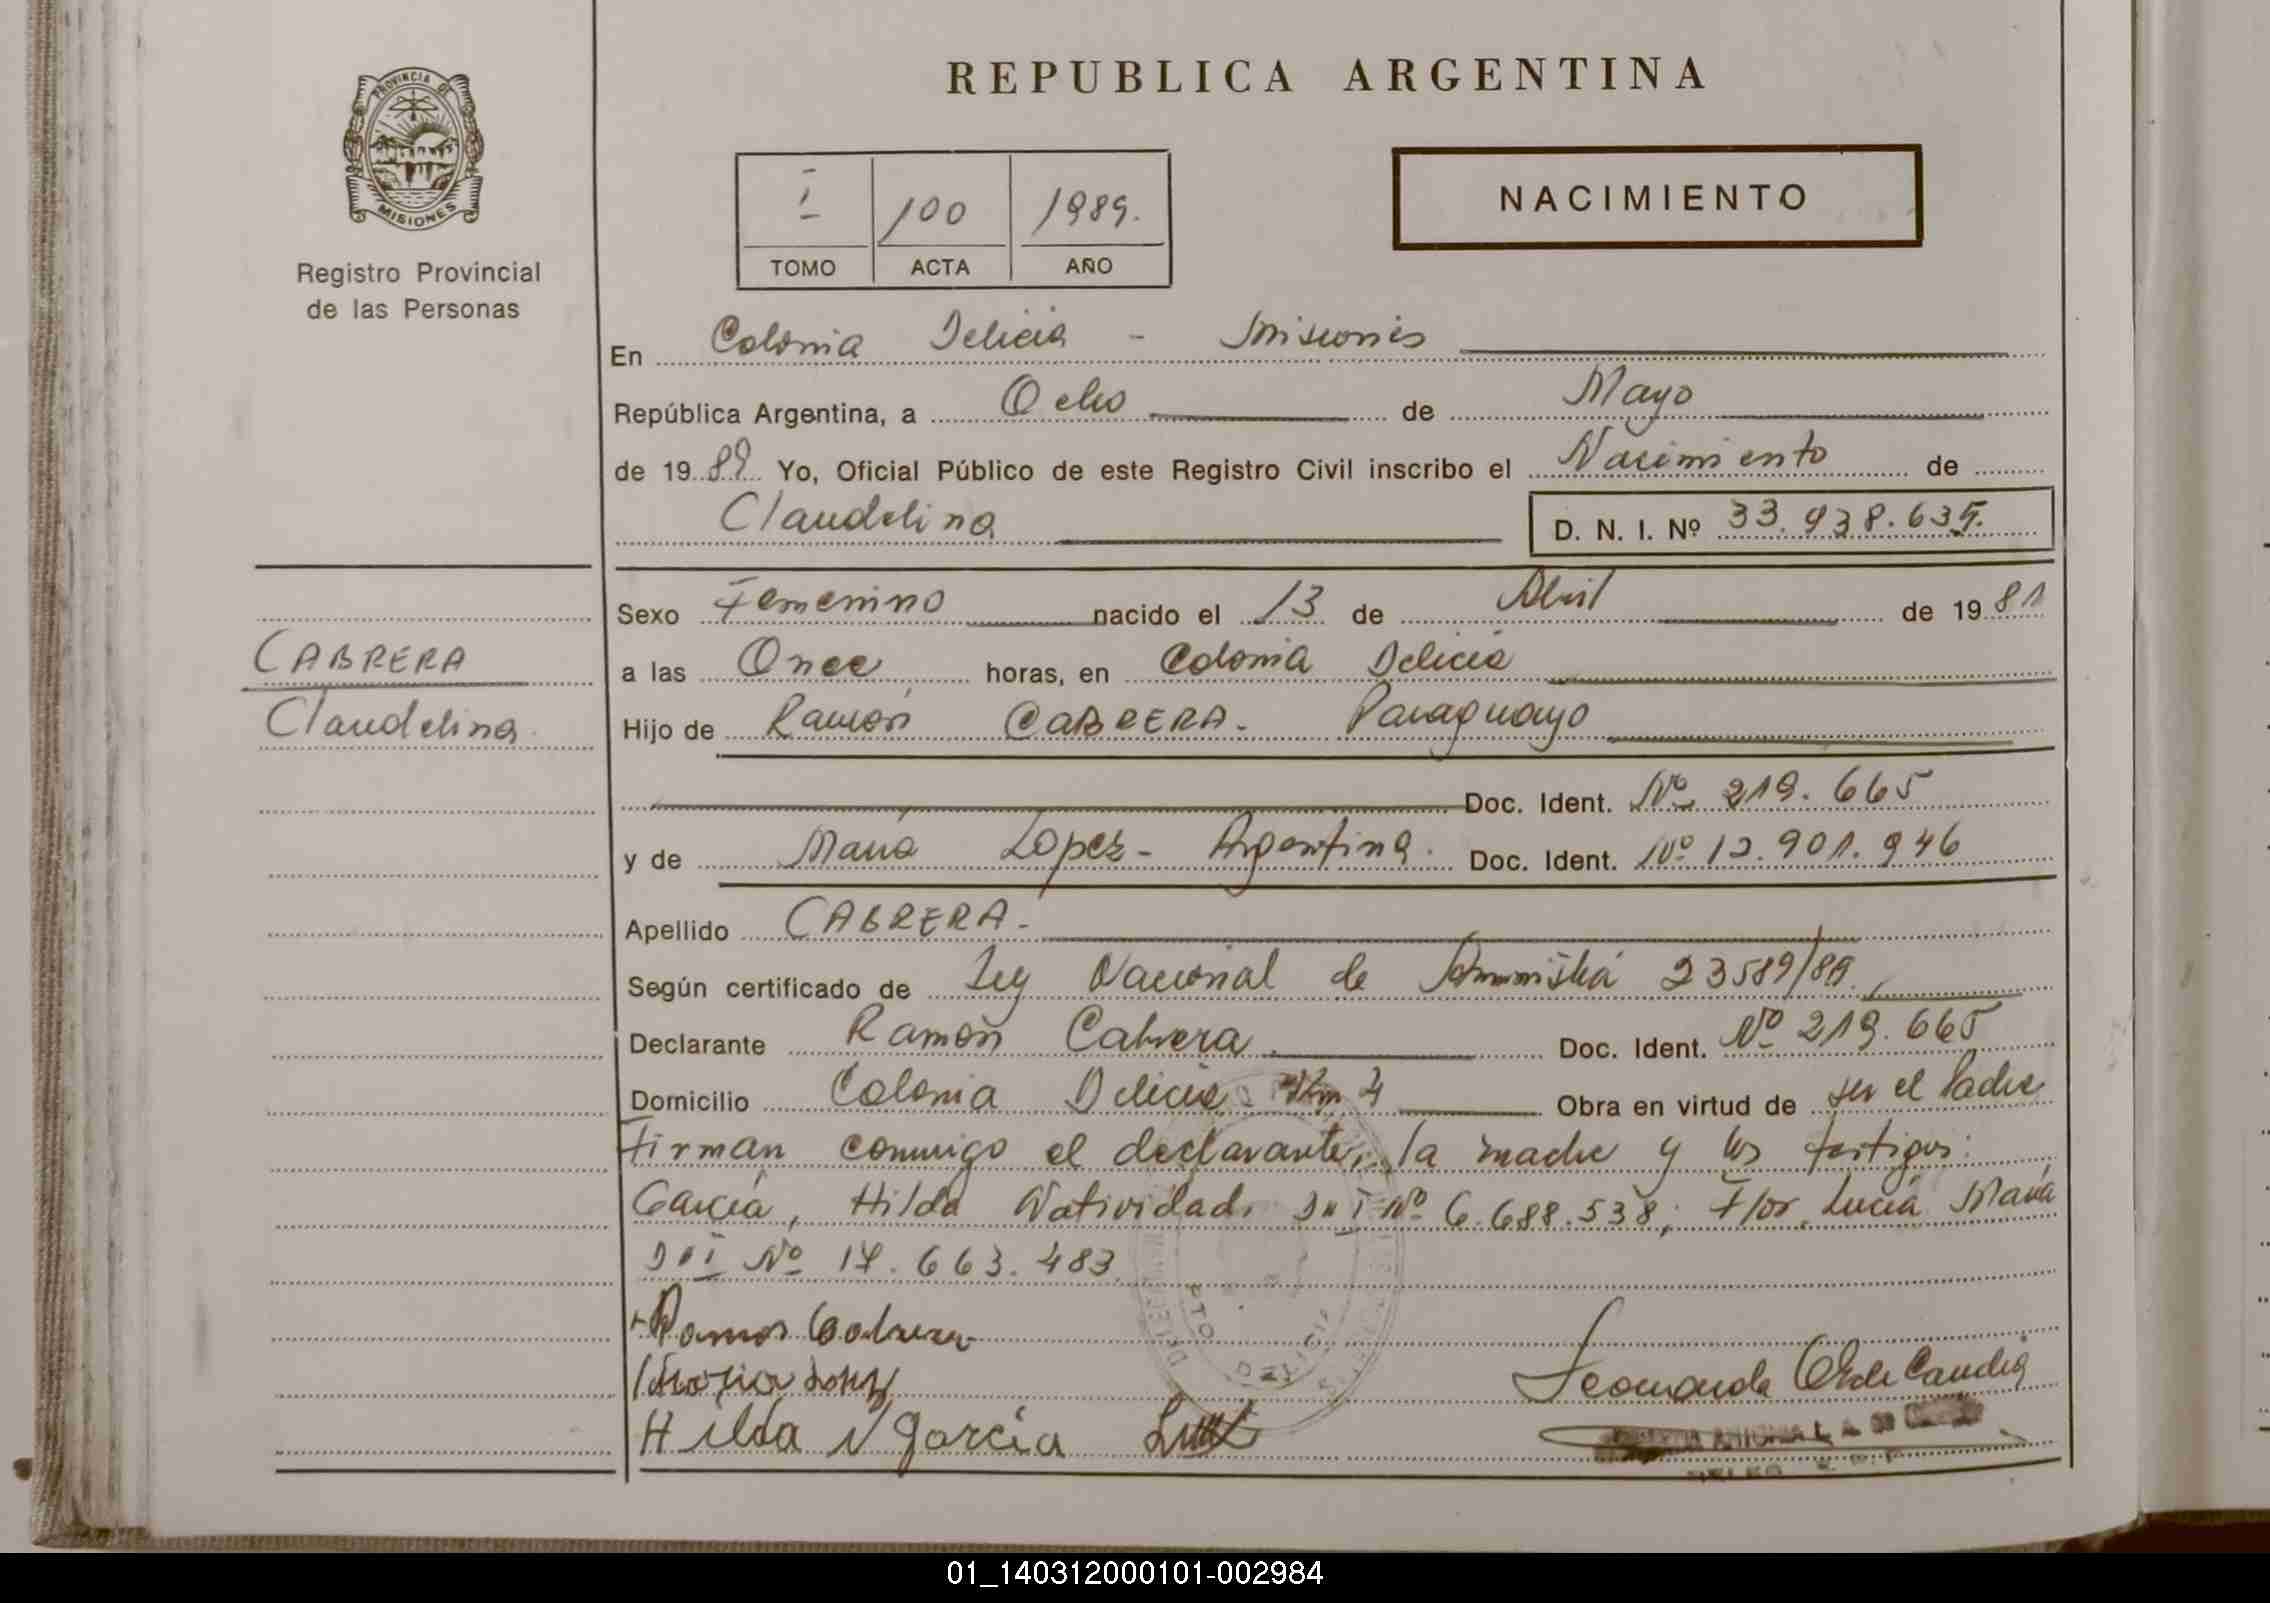 PROVINCIA DE
MISIONES
Registro Provincial
de las Personas
REPUBLICA ARGENTINA
I 100 1989.
TOMO ACTA AÑO
NACIMIENTO
En Colonia Delicia - Misiones
República Argentina, a Ocho de Mayo
de 1989 Yo, Oficial Público de este Registro Civil inscribo el Nacimiento de
Claudelina D. N. I. Nº 33.938.635.
Sexo Femenino nacido el 13 de Abril de 1981
CABRERA
Claudelina.
a las Once horas, en Colonia Delicia
Hijo de Ramón CABRERA. Paraguayo
Doc. Ident. Nº 219.665
y de María López - Argentina. Doc. Ident. Nº 12.901.946
Apellido CABRERA.
Según certificado de Ley Nacional de Amnistía 23589/89.
Declarante Ramón Cabrera Doc. Ident. Nº 219.665
Domicilio Colonia Delicia Km 4 Obra en virtud de ser el Padre
Firman conmigo el declarante, la madre y los testigos:
García, Hilda Natividad. DNI Nº 6.688.538; Flor, Lucía María
DNI Nº 17.663.483
Ramon Cabrera
Maria Lopez
Hilda N García
PTO DELICIA
01_140312000101-002984